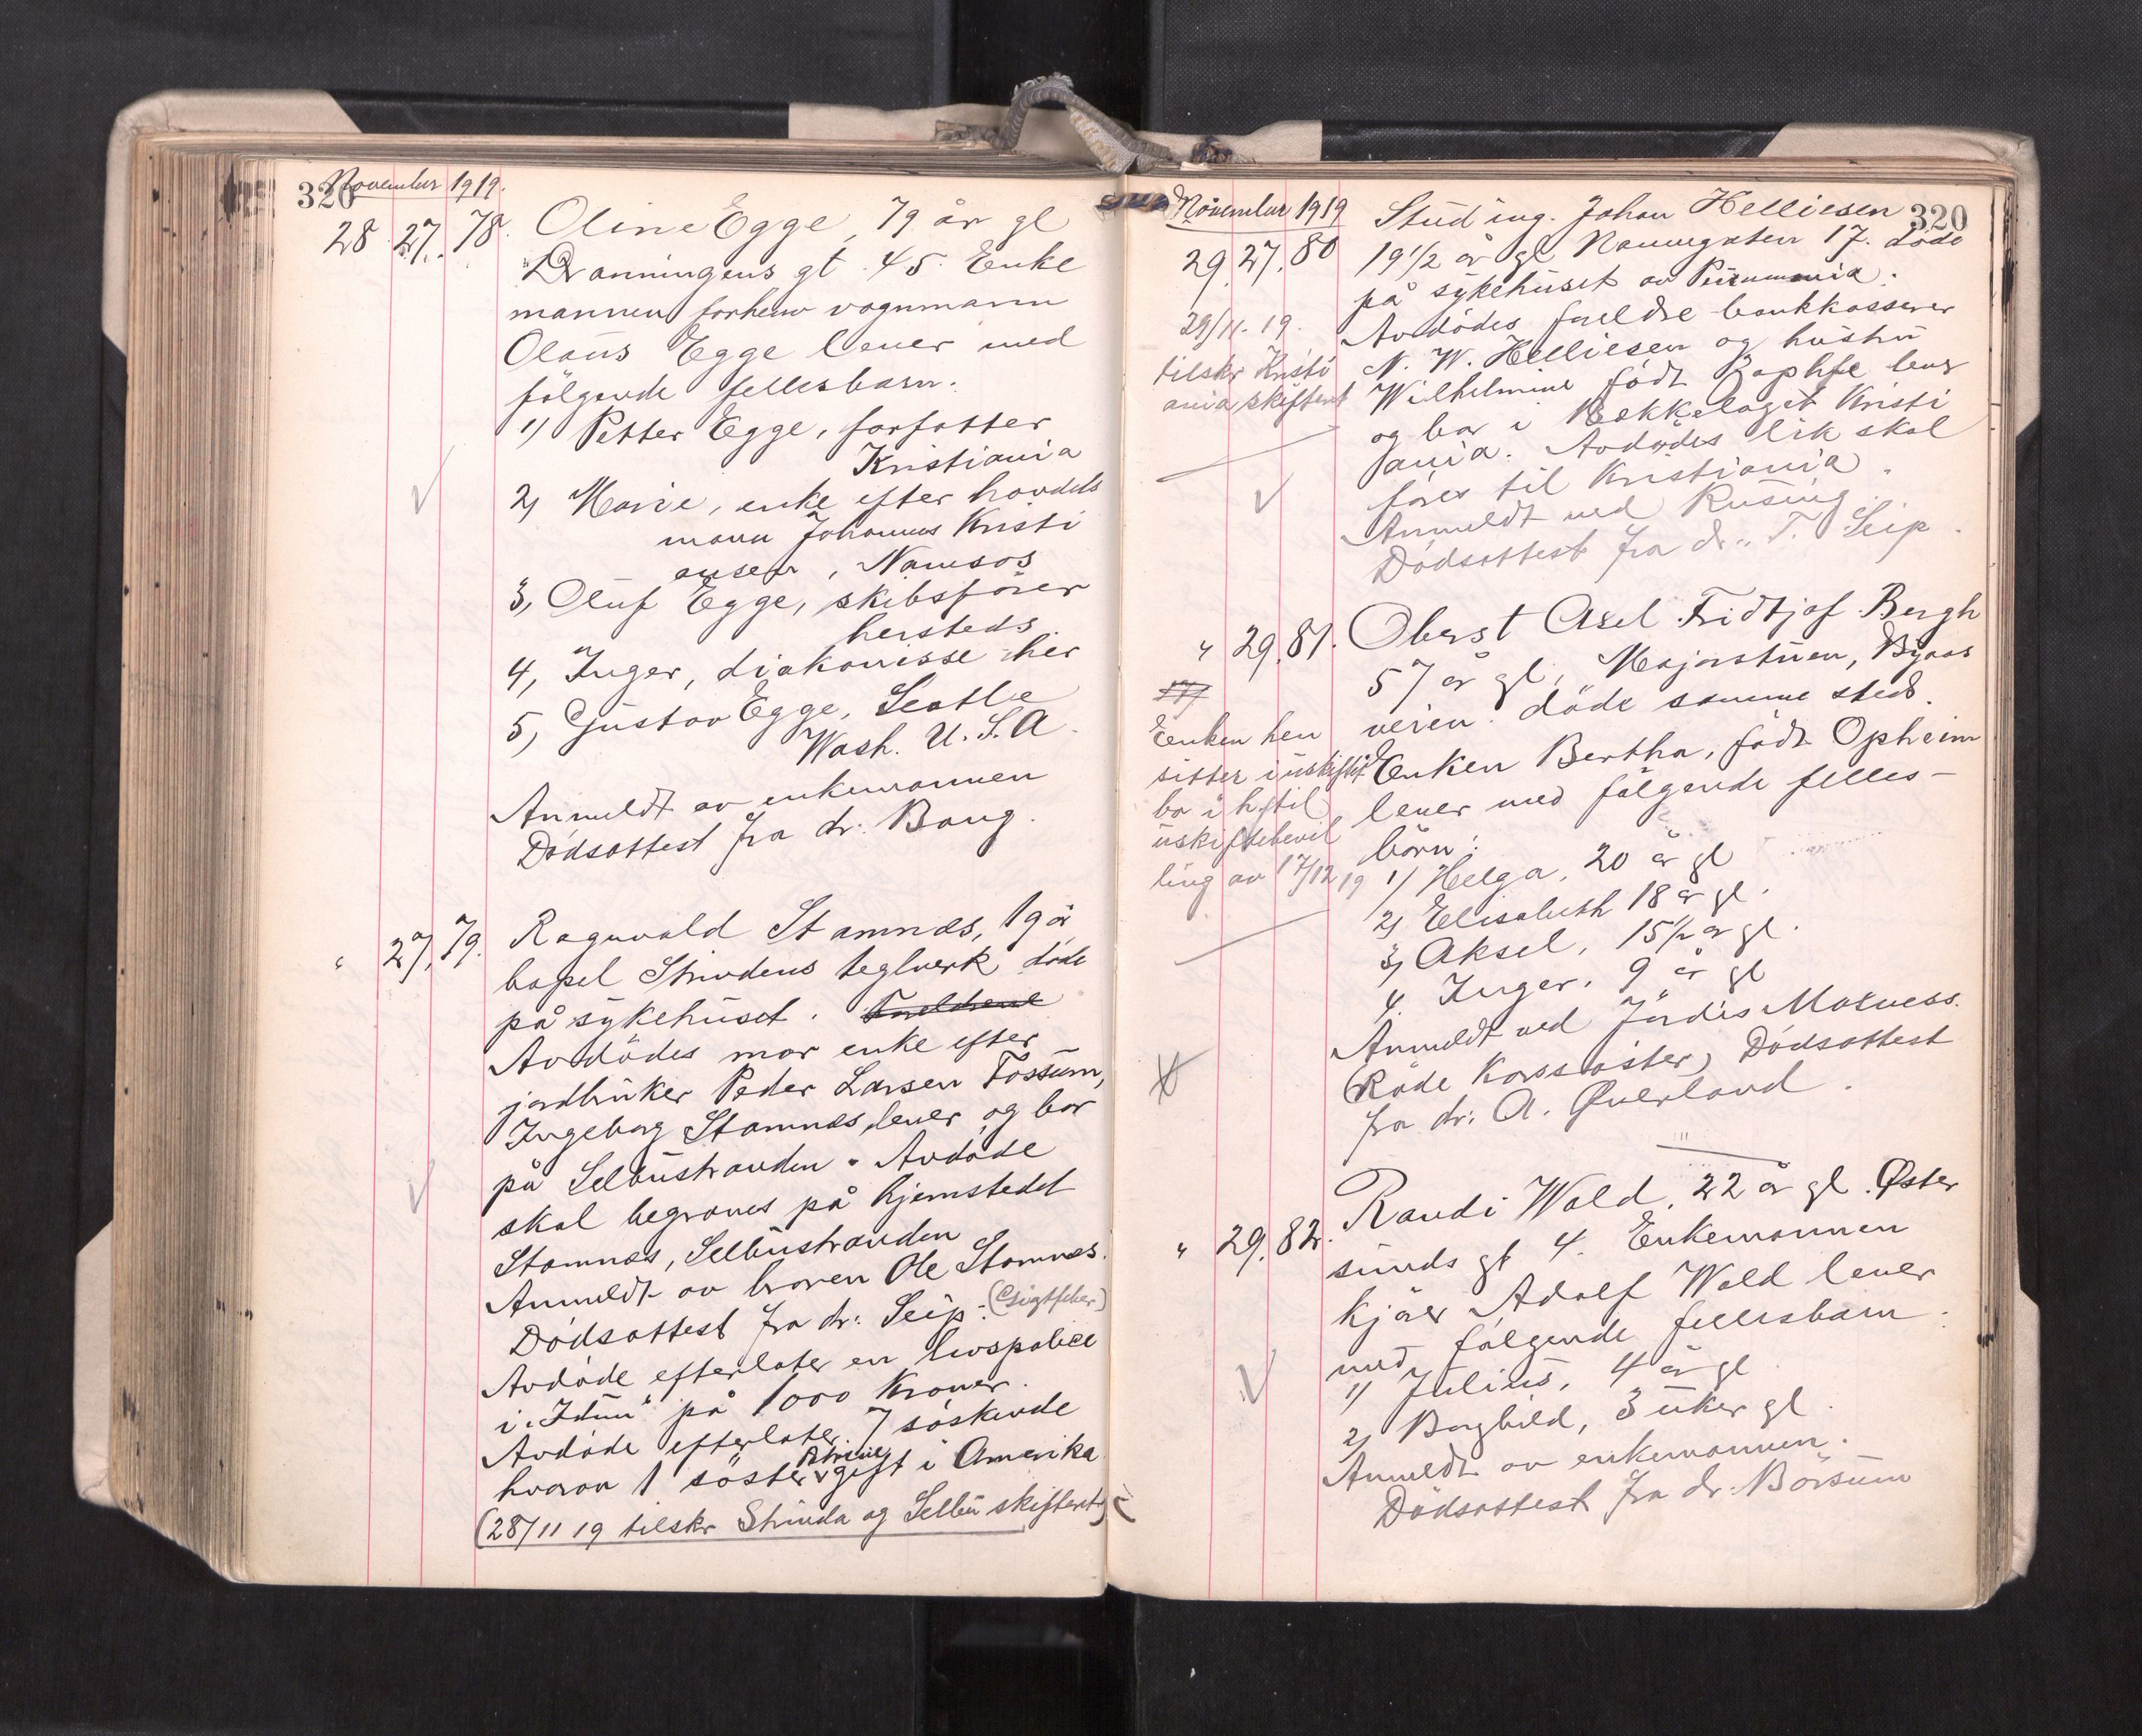 320
November 1919.
28 27. 78. Oline Egge, 79 år gl
Dronningens gt. 45. Enke
mannen forhenv vognmann
Olaus Egge lever med
følgende fellesbarn.
1) Petter Egge, forfatter
Kristiania
2) Marie, enke efter handels
mann Johannes Kristi
ansen, Namsos
3, Oluf Egge, skibsfører
hersteds.
4, Inger, diakonisse her
5, Gustav Egge, Seatle
Wash. U. S. A.
Anmeldt av enkemannen
Dødsattest fra dr. Bang.
" 27, 79. Ragnvald Stamnes, 19 år
bopel Strindens teglverk døde
på sykehuset. Foreldrene
Avdødes mor enke efter
jordbruker Peder Larsen Fossum,
Ingeborg Stamnes, lever og bor
på Selbustranden. Avdøde
skal begraves på hjemstedet
Stamnes, Selbustranden
Anmeldt av broren Ole Stamnes.
Dødsattest fra dr: Seip.
Avdøde efterlater en livspolice
i "Idun" på 1000 Kroner.
Avdøde efterlater 7 søskende
hvorav 1 søster gift i Amerika
(28/11 19 tilskr Strinda og Selbu skifterett)
320
November 1919
29. 27. 80 Stud ing. Johan Helliesen
19 1/2 år gl Nonnegaten 17. døde
på sykehuset av Pneumonia.
Avdødes foreldre bankkasserer
N. W. Helliesen og hustru
Wilhelmine født lever
og bor i Bekkelaget Kristi
ania. Avdødes lik skal
føres til Kristiania.
Anmeldt ved Rusing.
Dødsattest fra dr. T. Seip.
29/11. 19.
tilskr Kristi
ania skifterett
" 29. 81. Oberst Axel Fridtjof Bergh
57 år gl, Majorstuen, Byaas
veien. døde samme sted.
Enken Bertha, født Opheim
lever med følgende felles-
børn:
1) Helga, 20 år gl
2) Elisabeth 18 år gl.
3, Aksel, 15 1/2 år gl.
4. Inger. 9 år gl
Anmeldt ved Jørdis Mosness.
(Røde Korssøster) Dødsattest
fra dr: A. Øverland.
Enken hen
sitter i uskiftet
bo i h. til
uskiftebevil
ling av 17/12 19
" 29. 82. Randi Wold, 22 år gl. Øster
sunds gt 4. Enkemannen
kjører Adolf Wold lever
med følgende fellesbarn.
1) Julius, 4 år gl
2) Borghild, 3 uker gl.
Anmeldt av enkemannen.
Dødsattest fra dr. Børsum